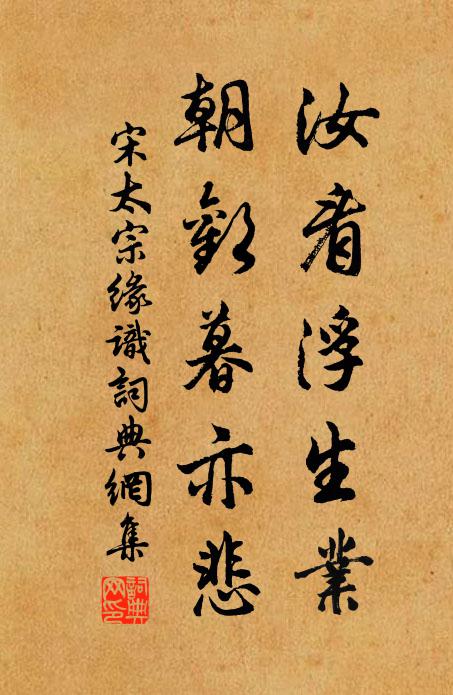 汝看浮生業
朝歡暮亦悲
宋太宗緣識詞典網集
詞典網印